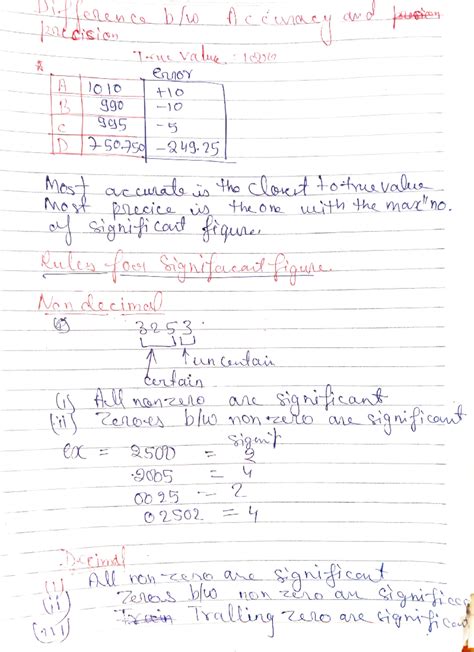 Difference b/w Accuracy and
precision
True value: 1000
error
A 1010 +10
B 990 -10
C 995 -5
D 750.750 -249.25
Most accurate is the closest to true value
Most precice is the one with the max no.
of significant figure.
Rules for Significant figure.
Non decimal
3253
uncertain
certain
(i) All nonzero are significant
(ii) Zeroes b/w non-zero are significant
signif
ex = 2500 = 2
2005 = 4
0025 - 2
02502 = 4
Decimal
(i) All non-zero are significant
(ii) Zeros b/w non zero are
(iii) Tralling zero are